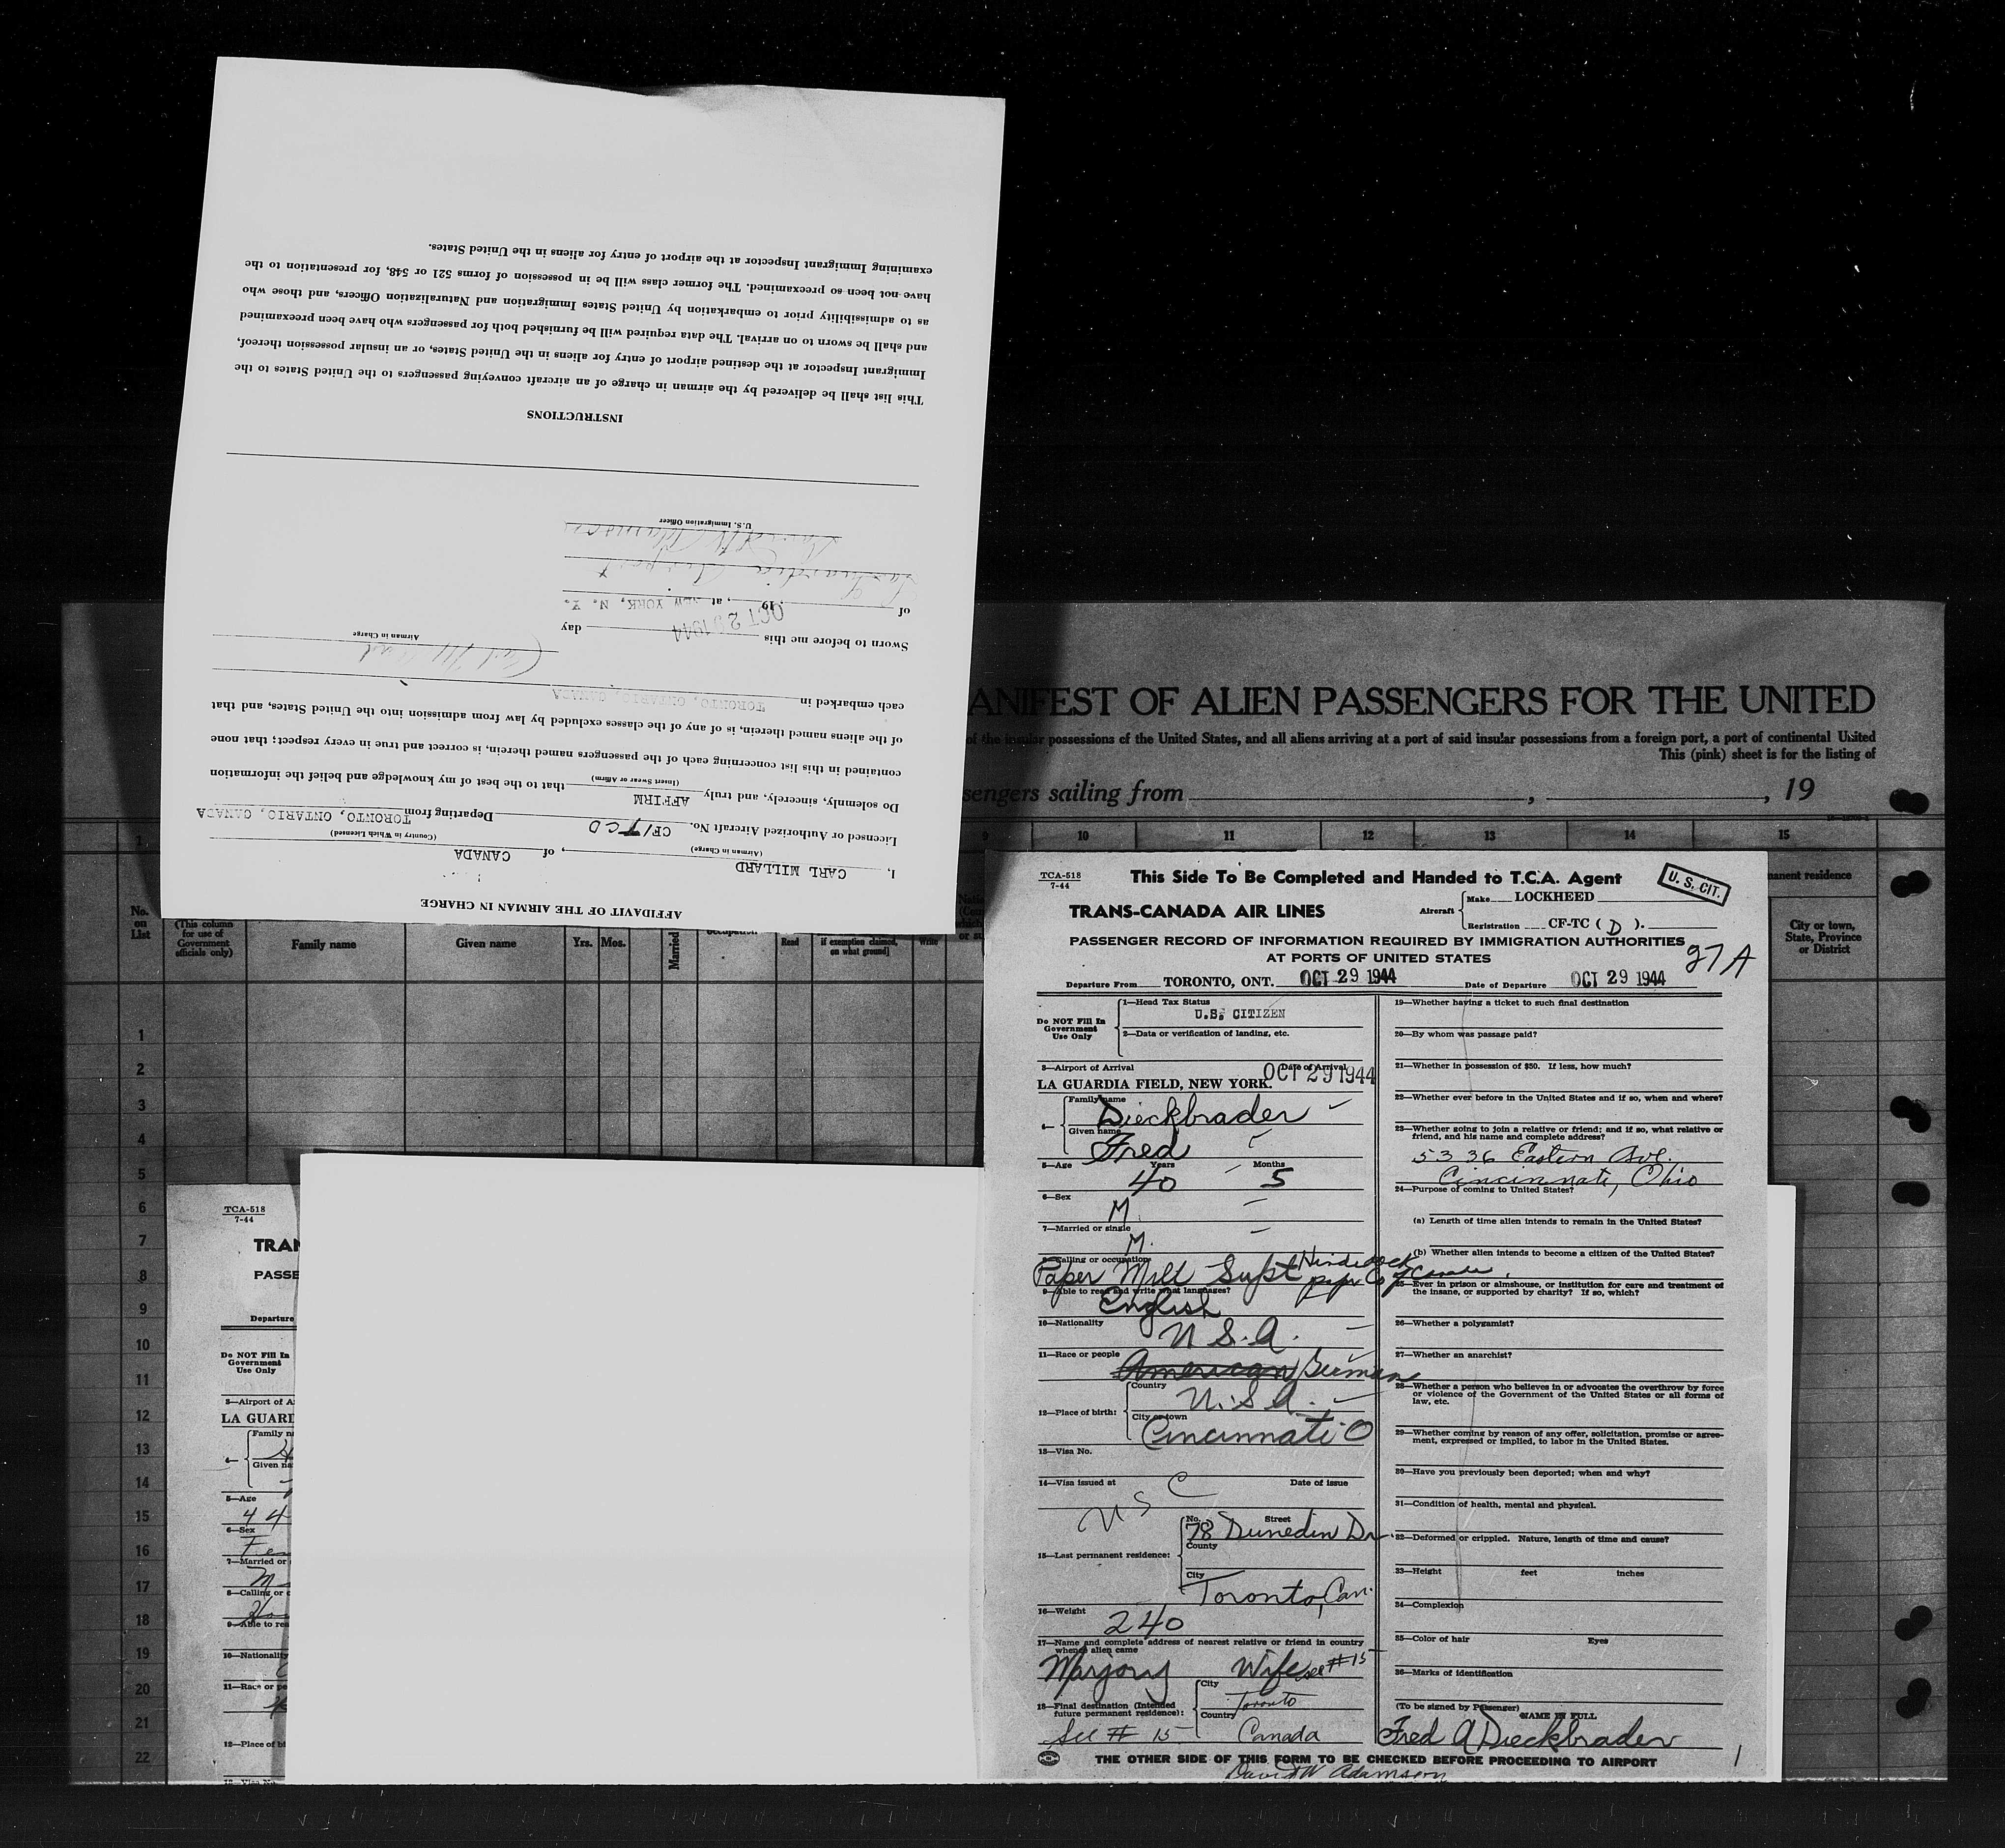 AFFIDAVIT OF THE AIRMAN IN CHARGE
I, CARL MILLARD, of CANADA
(Airman in Charge) (Country in Which Licensed)
Licensed or Authorized Aircraft No. CF/TCD Departing from TORONTO, ONTARIO, CANADA
Do solemnly, sincerely, and truly AFFIRM that to the best of my knowledge and belief the information
(Insert Swear or Affirm)
contained in this list concerning each of the passengers named therein, is correct and true in every respect; that none
of the aliens named therein, is of any of the classes excluded by law from admission into the United States, and that
each embarked in TORONTO, ONTARIO, CANADA
Carl Millard
Airman in Charge
Sworn to before me this OCT 29 1944 day
of , 19 , at NEW YORK, N. Y.
LaGuardia Airport
David W Adamson
U. S. Immigration Officer
INSTRUCTIONS
This list shall be delivered by the airman in charge of an aircraft conveying passengers to the United States to the
Immigrant Inspector at the destined airport of entry for aliens in the United States, or an insular possession thereof,
and shall be sworn to on arrival. The data required will be furnished both for passengers who have been preexamined
as to admissibility prior to embarkation by United States Immigration and Naturalization Officers, and those who
have not been so preexamined. The former class will be in possession of forms 521 or 548, for presentation to the
examining Immigrant Inspector at the airport of entry for aliens in the United States.
ANIFEST OF ALIEN PASSENGERS FOR THE UNITED
of the insular possessions of the United States, and all aliens arriving at a port of said insular possessions from a foreign port, a port of continental United
This (pink) sheet is for the listing of
sengers sailing from , , 19
1 9 10 11 12 13 14 15
No. on List
(This column for use of Government officials only)
Family name
Given name
Yrs. Mos.
Married
Read
if exemption claimed, on what ground]
Write
manent residence
City or town, State, Province or District
1
2
3
4
5
6
7
8
9
10
11
12
13
14
15
16
17
18
19
20
21
22
TCA-518
7-44
TRAN
PASSE
Departure
Do NOT Fill In
Government
Use Only
3—Airport of A
LA GUARD
Family n
4—
Given na
5—Age
44
6—Sex
Fem
7—Married or
M
8—Calling or o
9—Able to rea
10—Nationality
11—Race or pe
12—Place of bi
TCA-518
7-44
This Side To Be Completed and Handed to T.C.A. Agent
U. S. CIT.
TRANS-CANADA AIR LINES
Aircraft
Make LOCKHEED
Registration CF-TC ( D ).
PASSENGER RECORD OF INFORMATION REQUIRED BY IMMIGRATION AUTHORITIES
AT PORTS OF UNITED STATES
27A
Departure From TORONTO, ONT. OCT 29 1944 Date of Departure OCT 29 1944
Do NOT Fill In
Government
Use Only
1—Head Tax Status
U.S. CITIZEN
2—Data or verification of landing, etc.
3—Airport of Arrival Date of Arrival
LA GUARDIA FIELD, NEW YORK. OCT 29 1944
4—
Family name
Dieckbrader
Given name
Fred
5—Age Years Months
40 5
6—Sex
M
7—Married or single
M.
8—Calling or occupation
Paper Mill Supt Hinde Dock paper Co of Canada
9—Able to read and write what languages?
English
10—Nationality
U.S.A.
11—Race or people
American German
12—Place of birth:
Country
U.S.A.
City or town
Cincinnati O
13—Visa No.
14—Visa issued at Date of issue
USC
15—Last permanent residence:
No. Street
78 Dunedin Dr.
County
City
Toronto, Can.
16—Weight
240
17—Name and complete address of nearest relative or friend in country
whence alien came
Marjory Wife see #15
18—Final destination (Intended
future permanent residence):
City
Toronto
Country
See # 15 Canada
19—Whether having a ticket to such final destination
20—By whom was passage paid?
21—Whether in possession of $50. If less, how much?
22—Whether ever before in the United States and if so, when and where?
23—Whether going to join a relative or friend; and if so, what relative or
friend, and his name and complete address?
5336 Eastern Ave.
Cincinnati, Ohio
24—Purpose of coming to United States?
(a) Length of time alien intends to remain in the United States?
(b) Whether alien intends to become a citizen of the United States?
25—Ever in prison or almshouse, or institution for care and treatment of
the insane, or supported by charity? If so, which?
26—Whether a polygamist?
27—Whether an anarchist?
28—Whether a person who believes in or advocates the overthrow by force
or violence of the Government of the United States or all forms of
law, etc.
29—Whether coming by reason of any offer, solicitation, promise or agree-
ment, expressed or implied, to labor in the United States.
30—Have you previously been deported; when and why?
31—Condition of health, mental and physical.
32—Deformed or crippled. Nature, length of time and cause?
33—Height feet inches
34—Complexion
35—Color of hair Eyes
36—Marks of identification
(To be signed by Passenger)
NAME IN FULL
Fred A Dieckbrader
THE OTHER SIDE OF THIS FORM TO BE CHECKED BEFORE PROCEEDING TO AIRPORT
David W Adamson
1